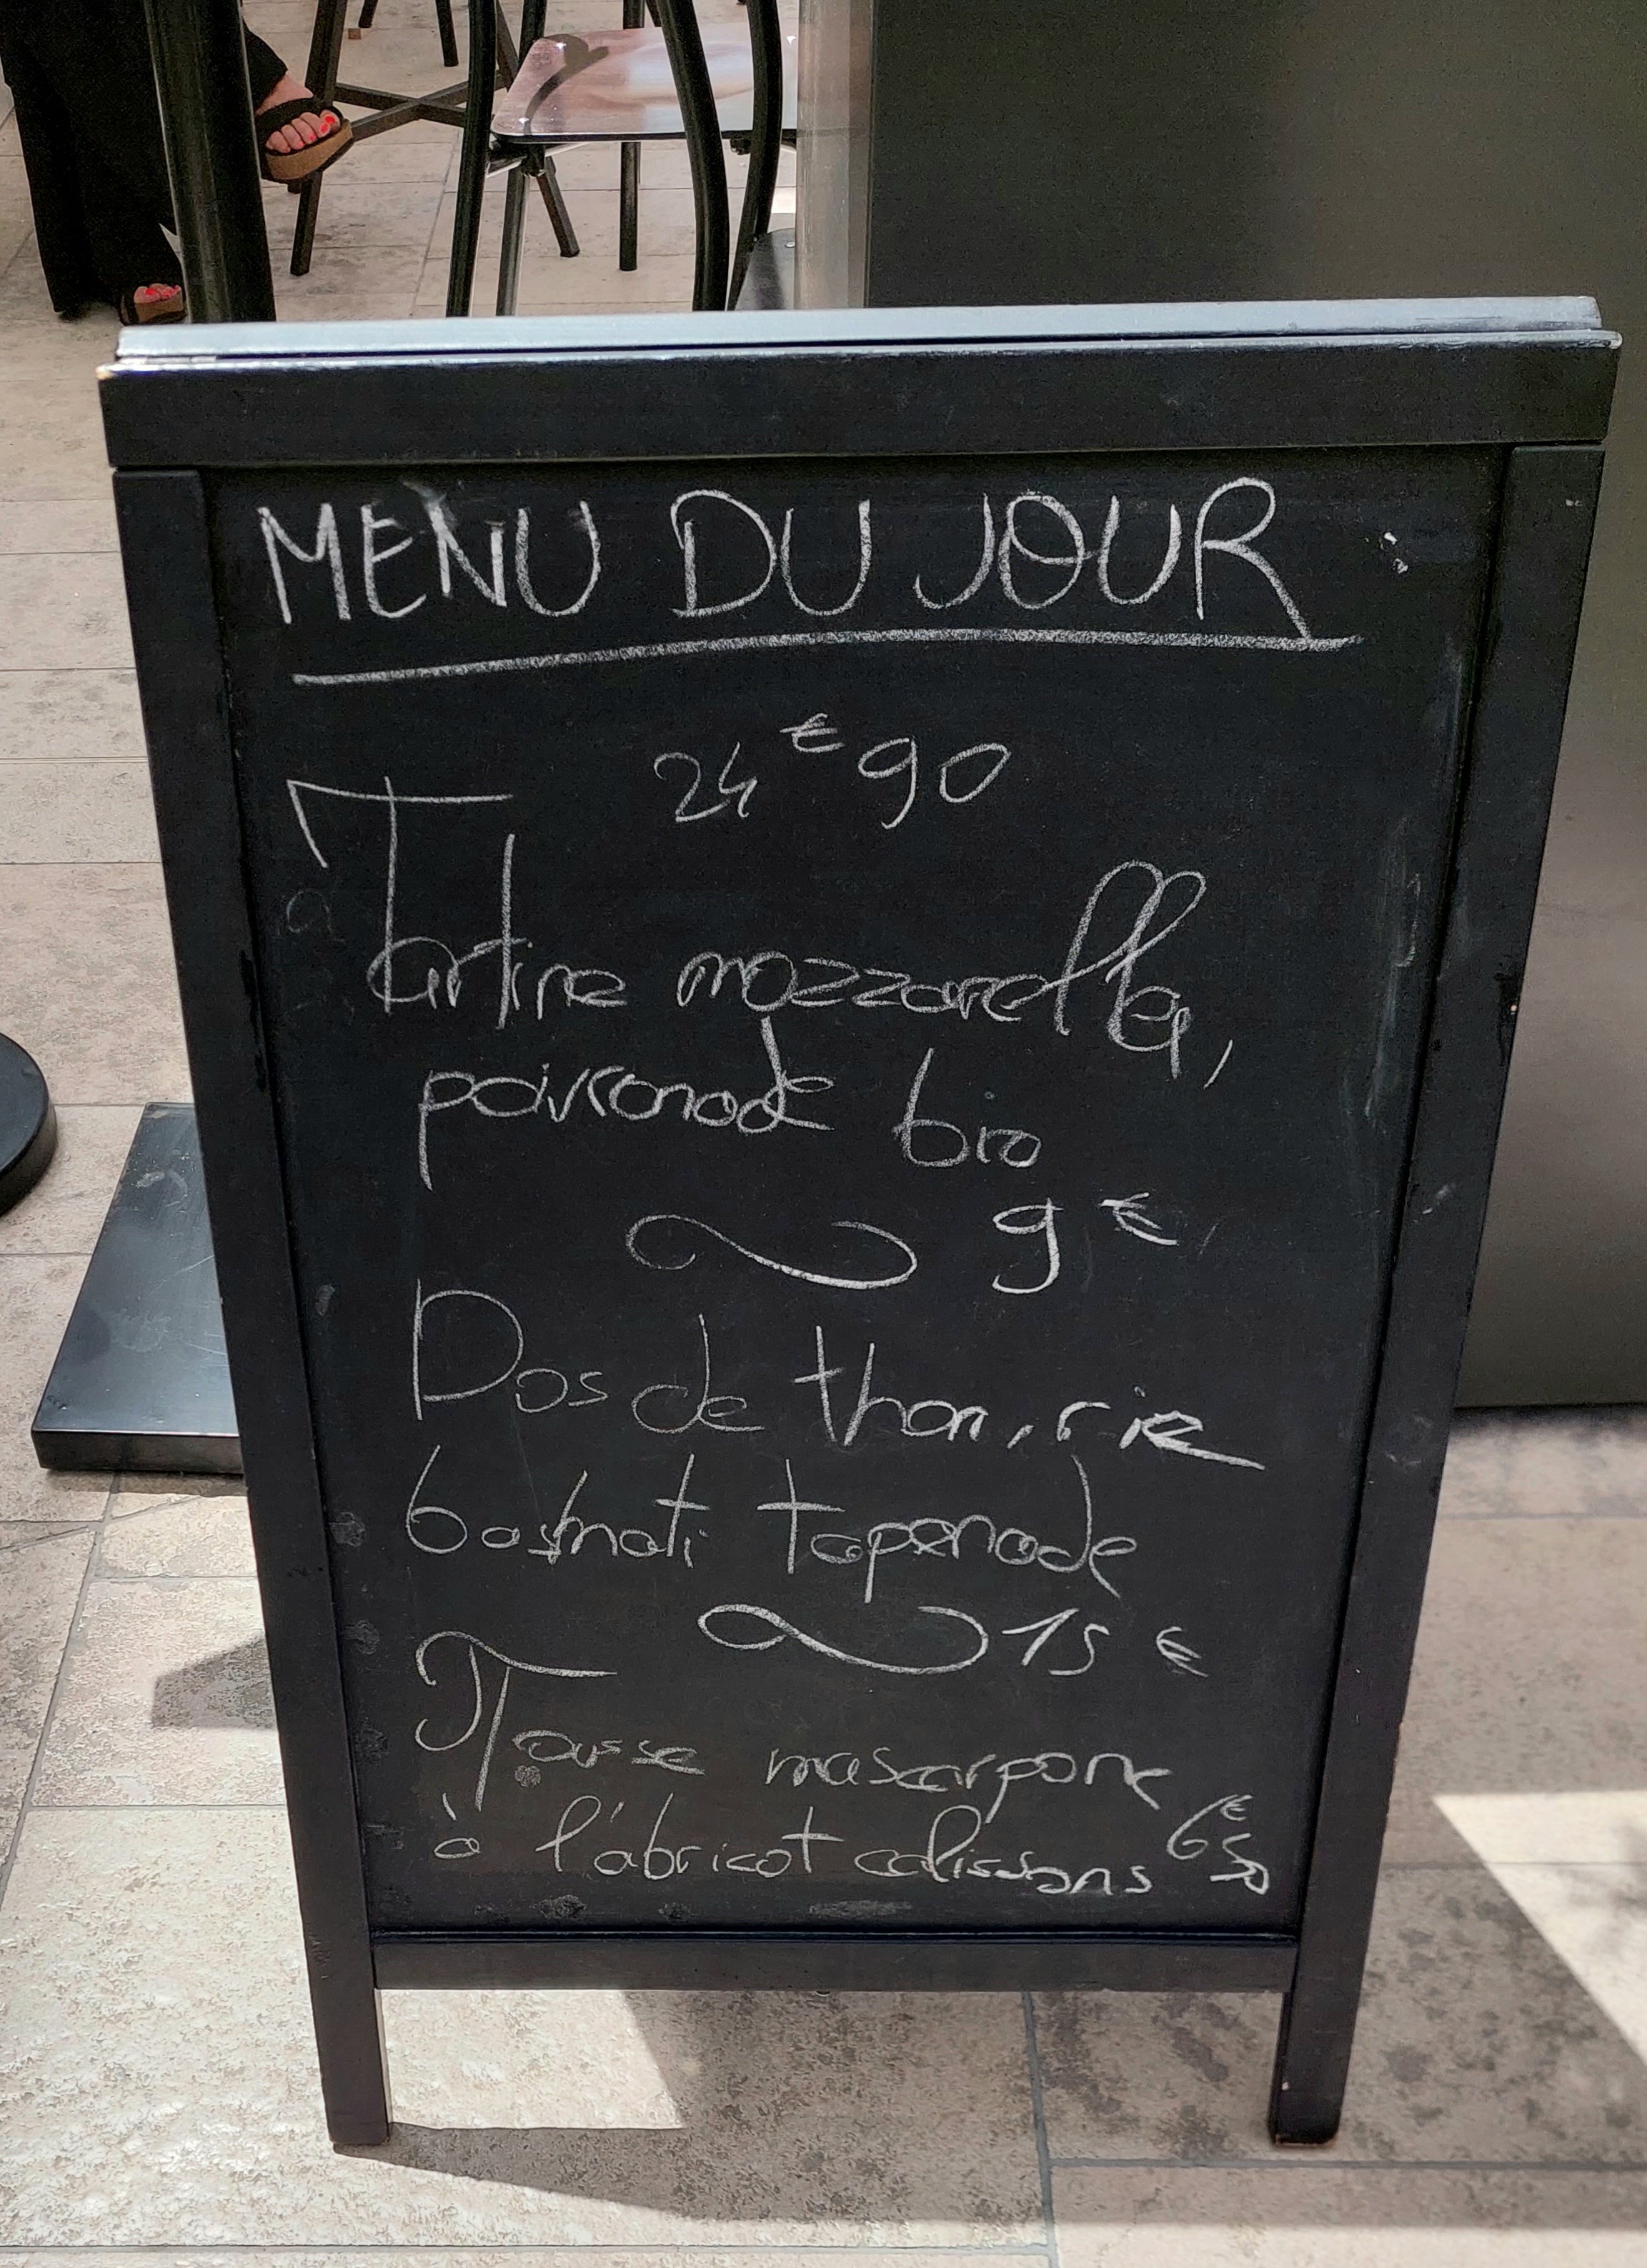 MENU DU JOUR
24€90
Tartine mozzarella,
poivronade bio
9€
Dos de thon, riz
basmati tapenade
15€
Mousse mascarpone
à l'abricot calissons 6€50